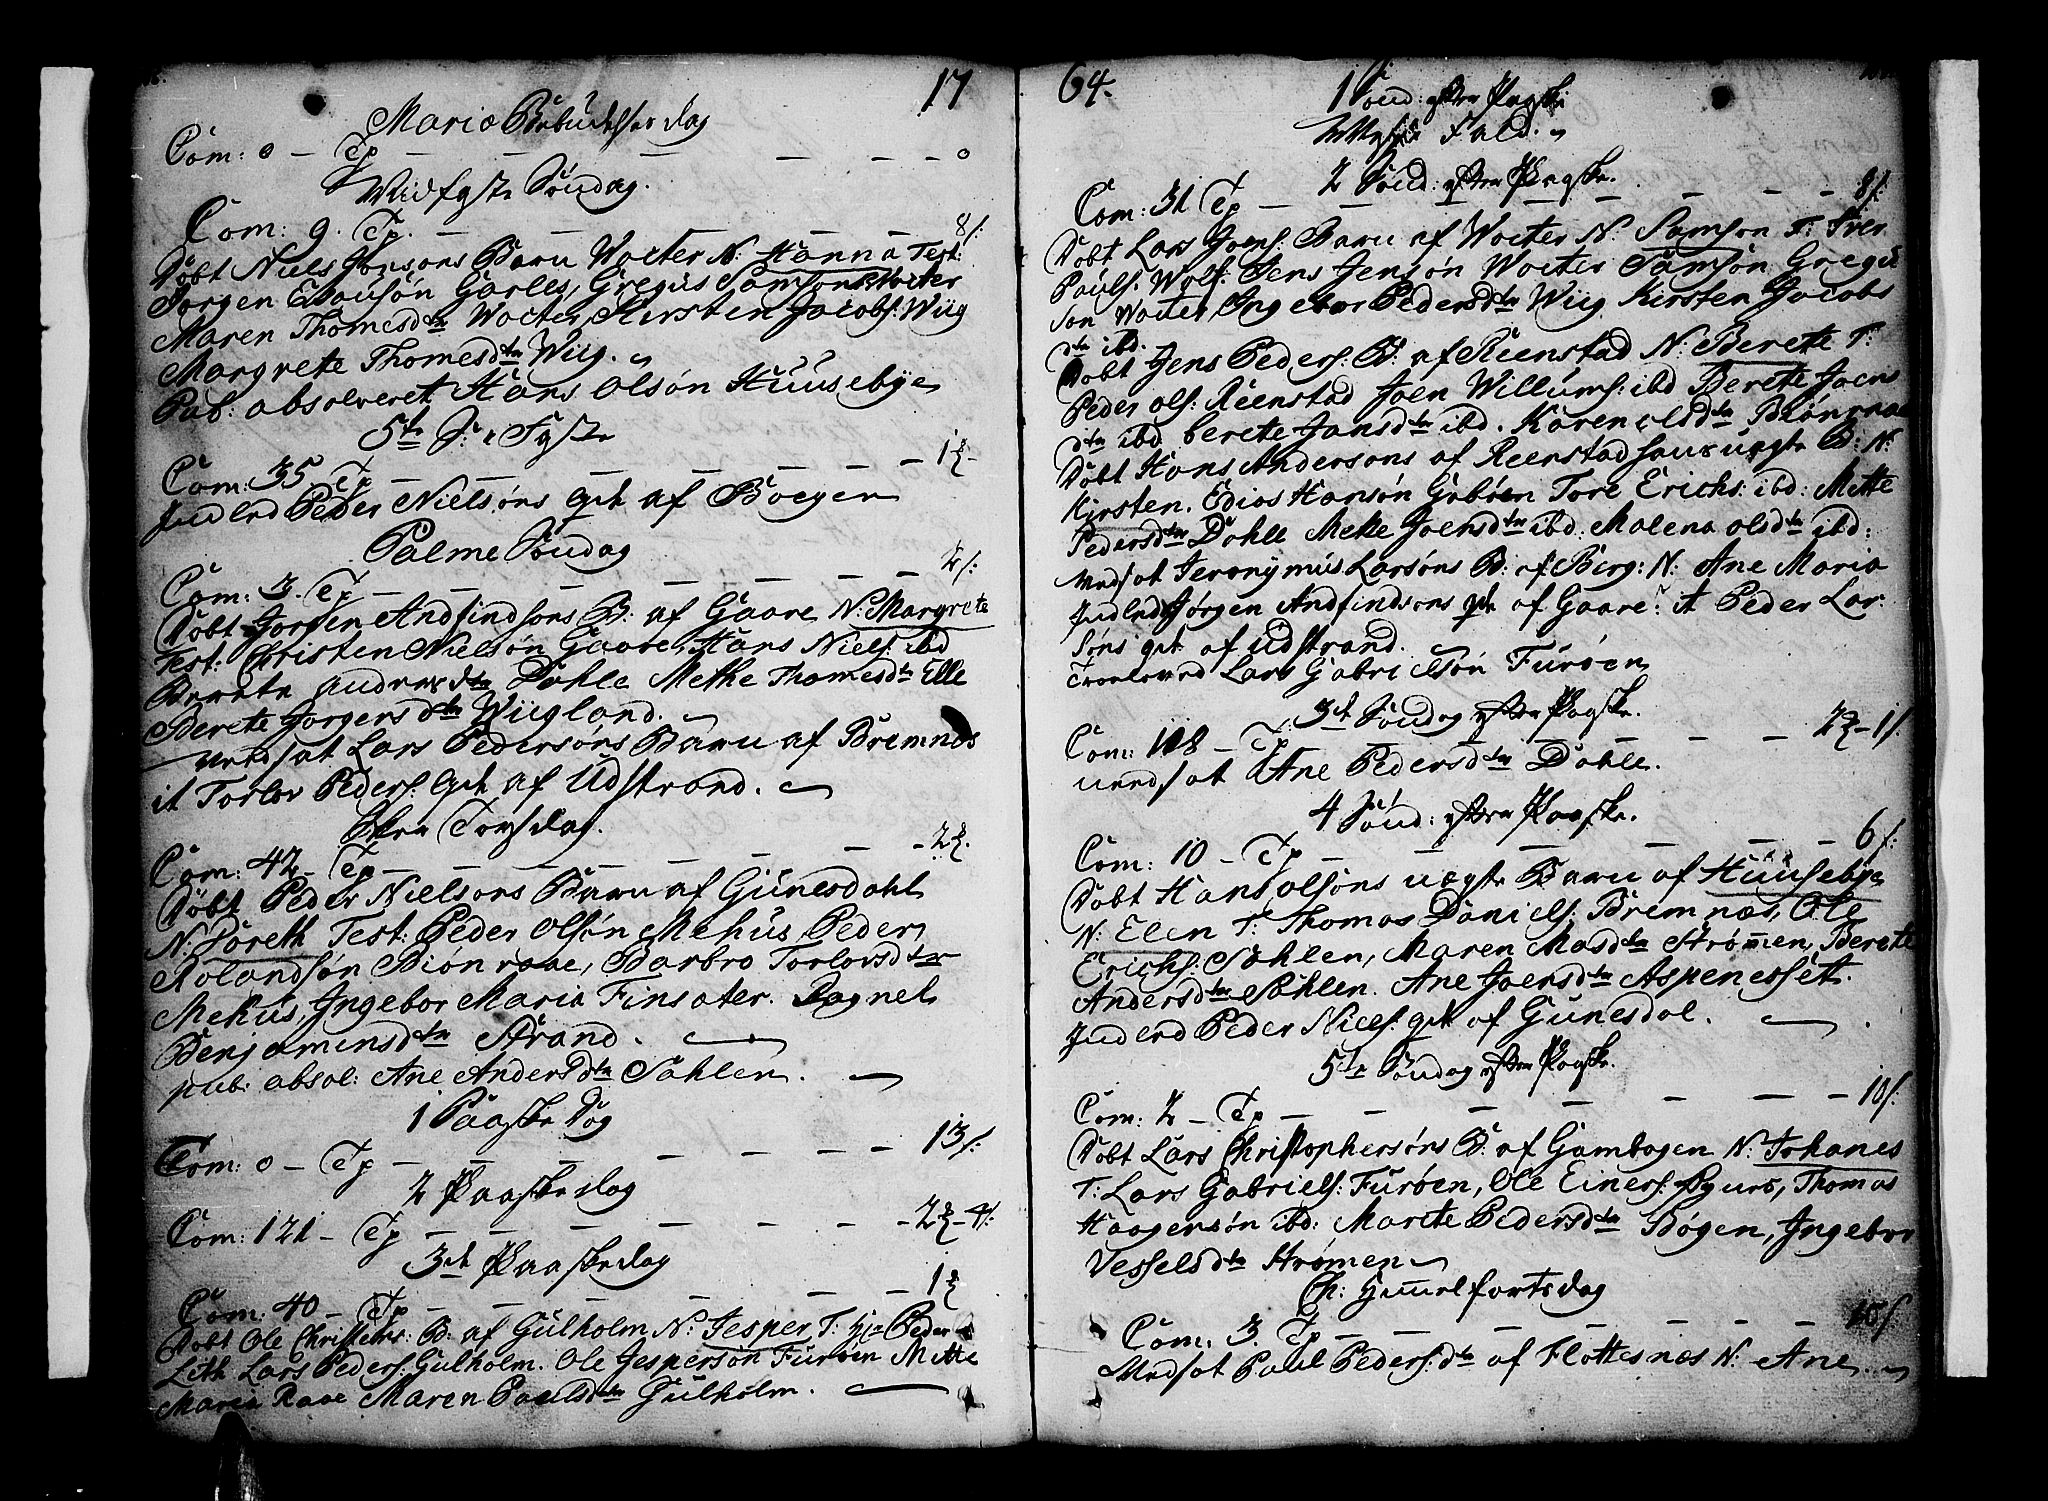 17
Mariæ Bebudelses dag
Com: 0 – Tp – – – – – 0
Midfaste Søndag.
Com: 9. Tp. – – – – 8 s:
Døbt Niels Jonsons Barn Wocter N: Hanna Test:
Jørgen Esausøn Garles, Gregus Samsons: Wocter
Maren Thomesdtr Wocter, Kirsten Jacobs: Wiig
Margrete Thomesdtr Wiig.
Pub: absolveret Hans Olsøn Huusebye
5te S: i Faste
Com: 35 Tp – – – – – 1
Indled Peder Nielsøns qvi: af Bøegen
Palme Søndag
Com: 3. Tp – – – – – 2 s:
Døbt Jørgen Andfindsøns B: af Gaare N: Margrete
Test: Christen Nielsøn Gaare, Hans Niels: ibd
Berete Andersdtr Dohle Methe Thomesdtr Elle
Berete Jørgensdtr Wiigland.
Jordsat Lars Pedersøns Barn af Bremnes
it Torlov Peders: qvi: af Udstrand.
Skier Torsdag.
Com: 42 – Tp – – – – – 2
Døbt Peder Nielsøns Barn af Gunesdahl
N: Doreth Test: Peder Olsøn Mehus, Peder
Rolandsøn Biønraae, Barbro Torlovsdtr
Mehus, Ingebor Maria Finsæter. Dagnel
Benjaminsdtr Strand.
pub: absol: Ane Andersdtr Sahlen.
1 Paaske Dag
Com: 0 – Tp – – – – – 13 s:
2 Paaskedag
Com: 121 – Tp – – – – – 2 – 4 s:
3de Paaskedag
Com: 40 – Tp – – – – – 1
Døbt Ole Christens: B: af Gulholm N: Jesper T: Hr Peder
Lith Lars Peders: Gulholm. Ole Jespersøn Furøen Mette
Maria Raae Maren Poulsdtr Gulholm.
64.
1 Sønd: efter Paaske
Messe Fald.
2 Sønd: efter Paaske.
Com: 31 Tp – – – – – 8 s:
Døbt Lars Joens: Barn af Wocter N: Samson T: Iver
Pouls: Wolf: Jens Jensøn Wocter Samsøn Gregu
søn Wocter Ingebor Pedersdtr Wiig Kirsten Jacobs
dtr ibd.
Døbt Jens Peders: B: af Reenstad N: Berete T:
Peder Ols: Reenstad Joen Willums: ibd Berete Joens
dtr ibd berete Jansdtr ibd. Karen Olsdtr Biønraae
Døbt Hans Andersøns af Reenstad uægte B: N:
Kirsten. Edias Hansøn Tore Erichs: ibd: Mette
Pedersdtr Dohle Mette Joensdtr ibd. Malena Olsdtr ibd:
Jordsat Jeronymus Larsøns B: af Berg: N: Ane Maria
Indled Jørgen Andfindsøns qvi: af Gaare: it Peder Lar:
søns qvi: af Udstrand.
Trolovud Lars Gabrielsøn Furøen
3de Søndag efter Paaske.
Com: 118 – Tp – – – – – 2 – 1 s:
Jordsat Ane Pedersdtr Dohle.
4 Sønd: efter Paaske.
Com: 10 – Tp – – – – – 6 s:
Døbt Hans Olsøns uægte Barn af Huusebye
N: Elen T: Thomas Daniels: Bremnæs, Ole
Erichs: Sahlen, Maren Masdtr Strømen, Berete
Andersdtr Sahlen. Ane Joensdtr Aspenesset.
Indled Peder Niels: qvi: af Gunesdal.
5te Søndag efter Paaske.
Com: 2 – Tp – – – – – 18 s:
Døbt Lars Christophersøns B: af Gambogen N: Johanes
T: Lars Gabriels: Furøen, Ole Einers: Thomas
Haagensøn ibd: Marite Pedersdtr Bøgen, Ingebor
Vesselsdtr Strømen
Ch: Himmelfartsdag
Com: 3. Tp – – – – – 10 s
Jordsat Paul Peders: dtr af Flottesnæs N: Ane.